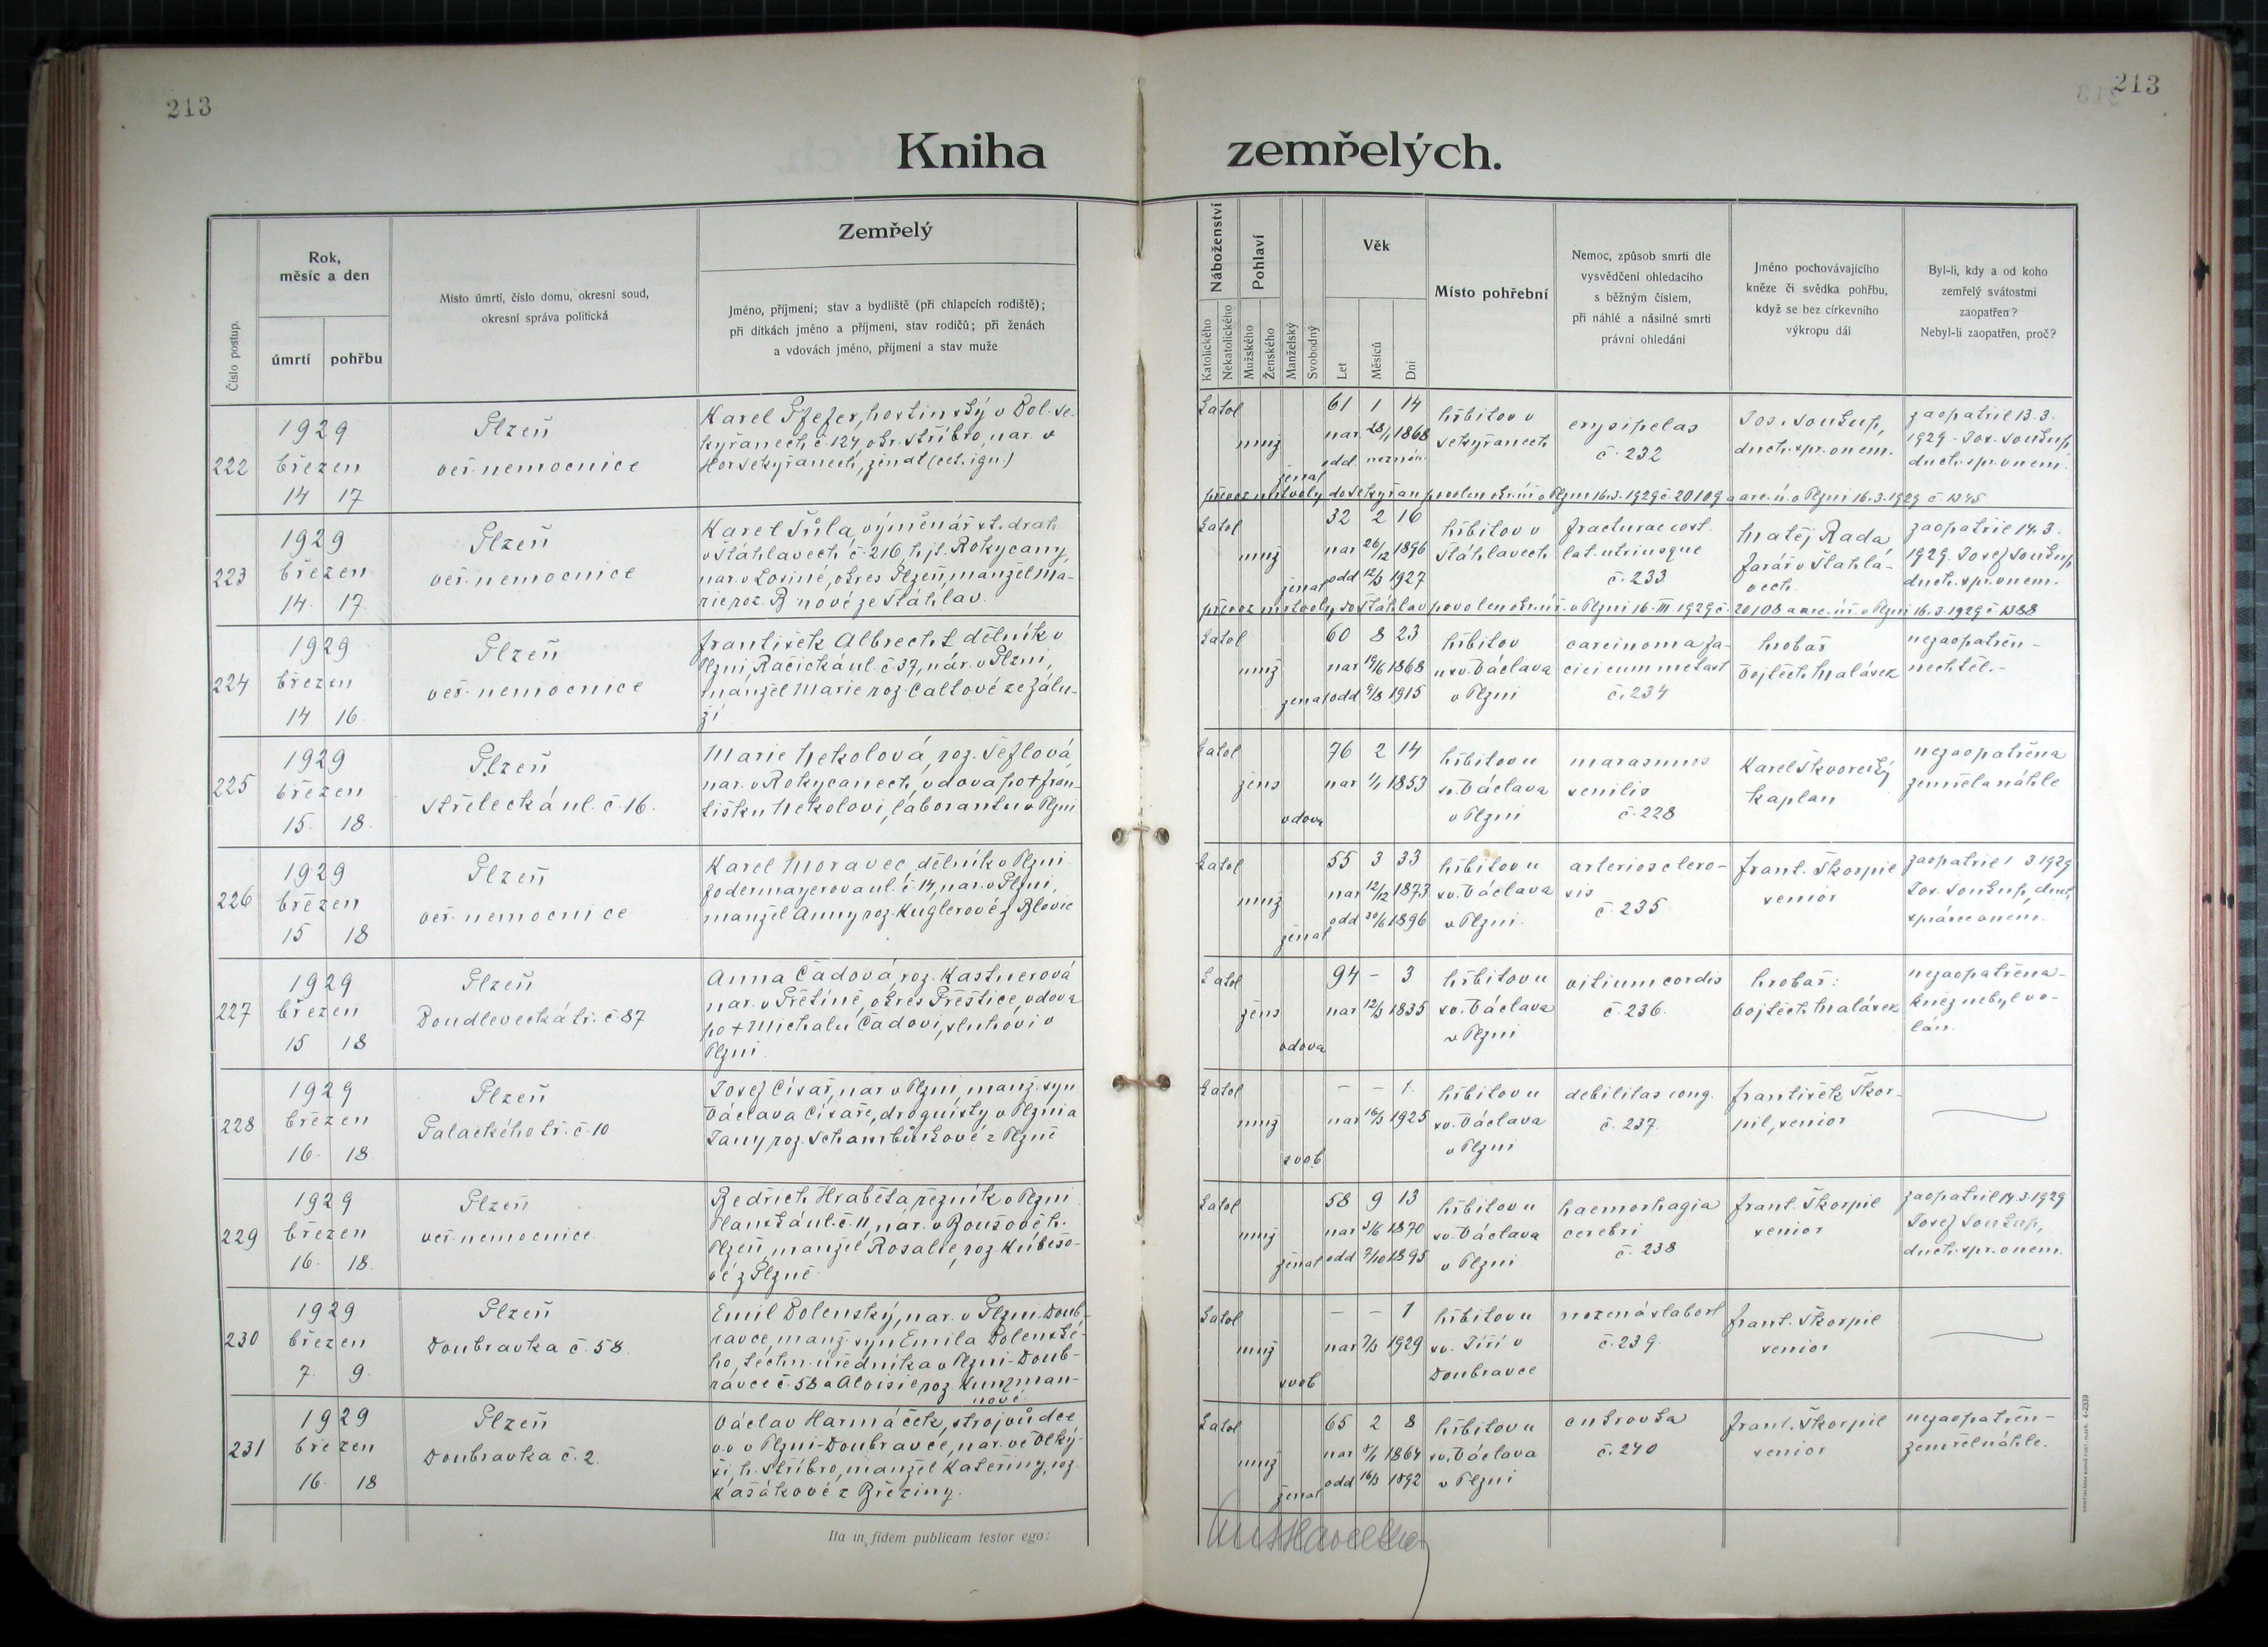 213
213
Kniha zemřelých.
Číslo postup.
Rok,
měsíc a den
úmrtí
pohřbu
Místo úmrtí, číslo domu, okresní soud,
okresní správa politická
Zemřelý
Jméno, příjmení; stav a bydliště (při chlapcích rodiště);
při dítkách jméno a příjmení, stav rodičů; při ženách
a vdovách jméno, příjmení a stav muže
Náboženství
Katolického
Nekatolického
Pohlaví
Mužského
Ženského
Manželský
Svobodný
Věk
Let
Měsíců
Dní
Místo pohřební
Nemoc, způsob smrti dle
vysvědčení ohledacího
s běžným číslem,
při náhlé a násilné smrti
právní ohledání
Jméno pochovávajícího
kněze či svědka pohřbu,
když se bez církevního
výkropu dál
Byl-li, kdy a od koho
zemřelý svátostmi
zaopatřen?
Nebyl-li zaopatřen, proč?
222
1929
březen
14 17
Plzeň
veř. nemocnice
Karel Pfefer, hostinský v Dol. Se-
kyřanech č. 124 okr. Stříbro, nar. v
Hor. Sekyřanech, ženat (cet. ign.)
katol
muž
ženat
61 1 14
nar 28/1 1868
odd neznám.
hřbitov v
Sekyřanech
erysipelas
č. 232
Jos. Soukup,
duch. spr. v nem.
zaopatřil 13.3.
1929 - Jos. Soukup,
duch. spr. v nem.
převoz mrtvoly do Sekyřan povolen okr. úř. v Plzni 16.3.1929 č. 20109 a arc. ú. v Plzni 16.3.1929 č. 1345
223
1929
březen
14. 17.
Plzeň
veř. nemocnice
Karel Šůla, výměnář st. drah
v Šťáhlavech č. 216, hjt. Rokycany,
nar. v Losiné, okres Plzeň, manžel Ma-
rie roz. B nové ze Šťáhlav.
katol
muž
ženat
32 2 16
nar 26/12 1896
odd 12/3 1927
hřbitov v
Šťáhlavech
fracturae cost.
lat. utriusque
č. 233
Matěj Rada,
farář v Šťahla-
vech.
zaopatřil 14.3.
1929. Josef Soukup
duch. spr. v nem.
převoz mrtvoly do Šťáhlav povolen okr. úř. v Plzni 16.III.1929 č. 20108 a arc. úř. v Plzni 16.3.1929 č. 1388
224
1929
březen
14 16
Plzeň
veř. nemocnice
František Albrecht dělník v
Plzni, Račická ul. č. 37, nar. v Plzni,
manžel Marie roz. Caltové ze Zálu-
ží
katol
muž
ženat
60 8 23
nar 19/6 1868
odd 9/8 1915
hřbitov
u sv. Václava
v Plzni
carcinoma fa-
ciei cum metast
č. 234
hrobař
Vojtěch Malásek
nezaopatřen -
nechtěl. -
225
1929
březen
15. 18.
Plzeň
Střelecká ul. č. 16.
Marie Nekolová, roz. Šeflová,
nar. v Rokycanech, vdova po + Fran-
tišku Nekolovi, laborantu v Plzni
katol
žens
vdova
76 2 14
nar 1/1 1853
hřbitov u
sv. Václava
v Plzni
marasmus
senilis
č. 228
Karel Škvorecký
kaplan
nezaopatřena
zemřela náhle
226
1929
březen
15 18
Plzeň
veř. nemocnice
Karel Moravec, dělník v Plzni
Fodermayerova ul. č. 14, nar. v Plzni,
manžel Anny roz. Kuglerové z Blovic
katol
muž
ženat
55 3 33
nar 12/12 1873
odd 30/6 1896
hřbitov u
sv. Václava
v Plzni.
arteriosclero-
sis
č. 235
Frant. Škorpil
senior
zaopatřil 1 3 1929
Jos. Soukup, duch.
správce v nem.
227
1929
březen
15 18
Plzeň
Doudlevecká tř. č. 87
Anna Čadová, roz. Kastnerová
nar. v Přetíně, okres Přeštice, vdova
po + Michalu Čadovi, sluhovi v
Plzni.
katol
žens
vdova
94 - 3
nar 12/3 1835
hřbitov u
sv. Václava
v Plzni
vitium cordis
č. 236.
hrobař:
Vojtěch Malásek
nezaopatřena -
kněz nebyl vo-
lán.
228
1929
březen
16. 18.
Plzeň
Palackého tř. č. 10
Josef Císař, nar. v Plzni, manž. syn
Václava Císaře, drogisty v Plzni a
Jany roz. Schambůrkové z Plzně
katol
muž
svob
- - 1.
nar 16/3 1925
hřbitov u
sv. Václava
v Plzni
debilitas cong.
č. 237.
František Škor-
pil, senior
229
1929
březen
16. 18.
Plzeň
veř. nemocnice
Bedřich Hraběta, řezník v Plzni
Planská ul. č. 11, nar. v Boušově h.
Plzeň, manžel Rosalie, roz. Kubešo-
vé z Plzně.
katol
muž
ženat
58 9 13
nar 3/6 1870
odd 7/10 1895
hřbitov u
sv. Václava
v Plzni
haemorhagia
cerebri
č. 238
Frant. Škorpil
senior
zaopatřil 14.3.1929
Josef Soukup,
duch. spr. v nem.
230
1929
březen
7. 9.
Plzeň
Doubravka č. 58.
Emil Dolenský, nar. v Plzni-Doub-
ravce, manž. syn Emila Dolenské-
ho, techn. úředníka v Plzni-Doub-
ravce č. 58 a Aloisie roz. Kunzman-
nové.
katol
muž
svob
- - 1
nar 7/3 1929
hřbitov u
sv. Jiří v
Doubravce
vrozená slabost
č. 239.
Frant. Škorpil
senior
231
1929
březen
16. 18
Plzeň
Doubravka č. 2.
Václav Harmáček, strojvůdce
v.v. v Plzni-Doubravce, nar. ve Olký-
ši, h. Stříbro, manžel Kateřiny, roz.
Kasákové z Březiny.
katol
muž
ženat
65 2 8
nar 8/1 1864
odd 16/3 1892
hřbitov u
sv. Václava
v Plzni
cukrovka
č. 240
Frant. Škorpil
senior
nezaopatřen -
zemřel náhle.
Ita in fidem publicam testor ego: